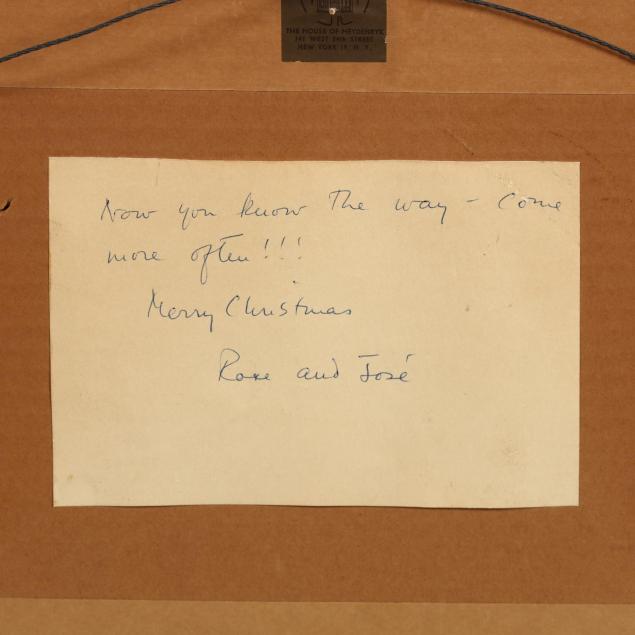 THE HOUSE OF HEYDENRYK
141 WEST 54th STREET
NEW YORK 19, N. Y.
Now you know The way - Come
more often!!!
Merry Christmas
Rose and José